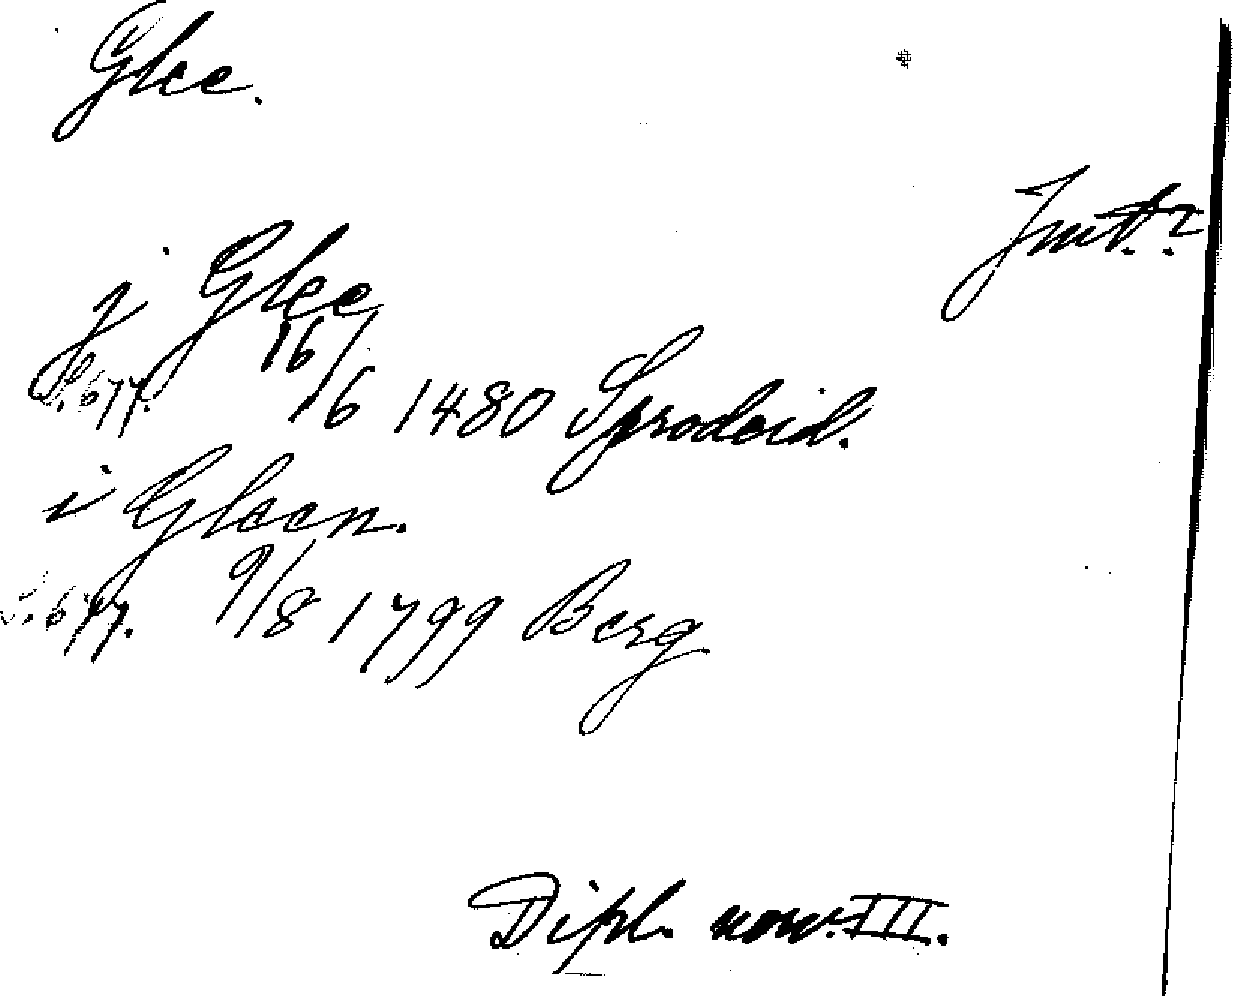 Glee.
Jmt.?
j Glee
S. 677. 16/6 1480 Sprodeid.
i Gleen.
S. 677. 9/8 1499 Berg
Dipl. norv. III.